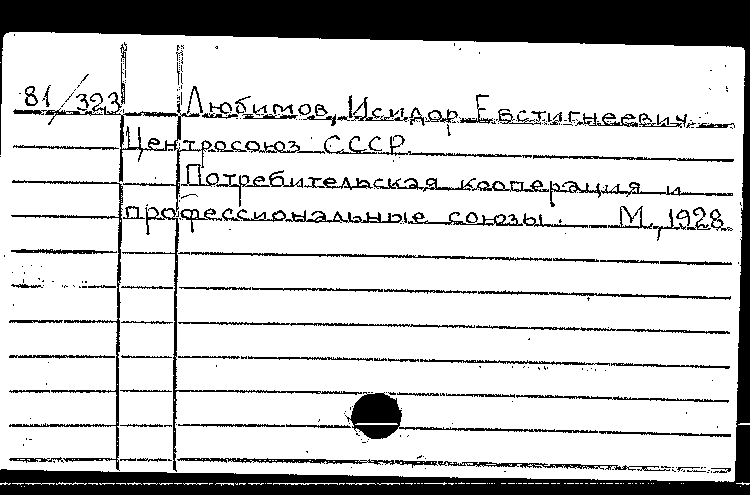 81/323 Любимов, Исидор Евстигнеевич.
Центросоюз СССР.
Потребительская кооперация и
профессиональные союзы. М., 1928